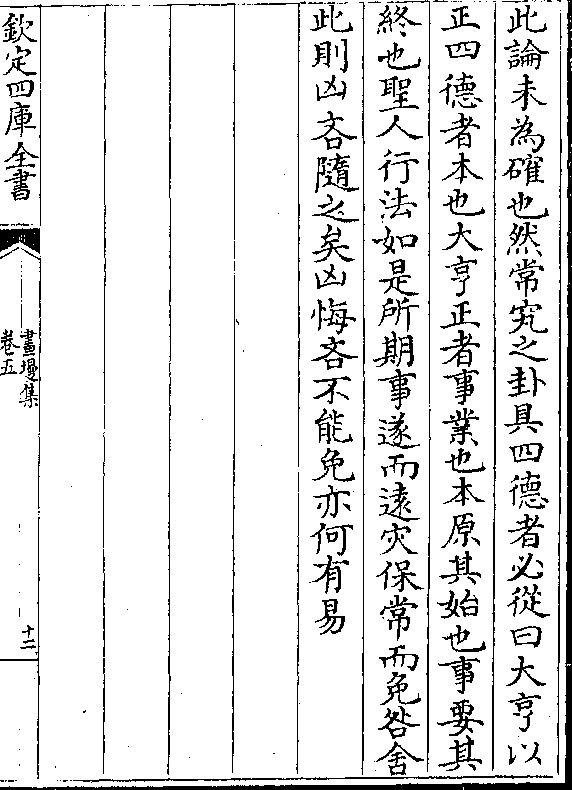 此論未為確也然常究之卦具四德者必從曰大亨以
正四德者本也大亨正者事業也本原其始也事要其
終也聖人行法如是所期事遂而遠灾保常而免咎舍
此則凶吝隨之矣凶悔吝不能免亦何有易
欽定四庫全書
畫墁集
卷五
十二